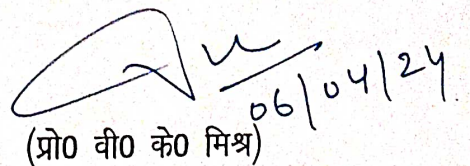 06/04/24
(प्रो0 वी0 के0 मिश्र)